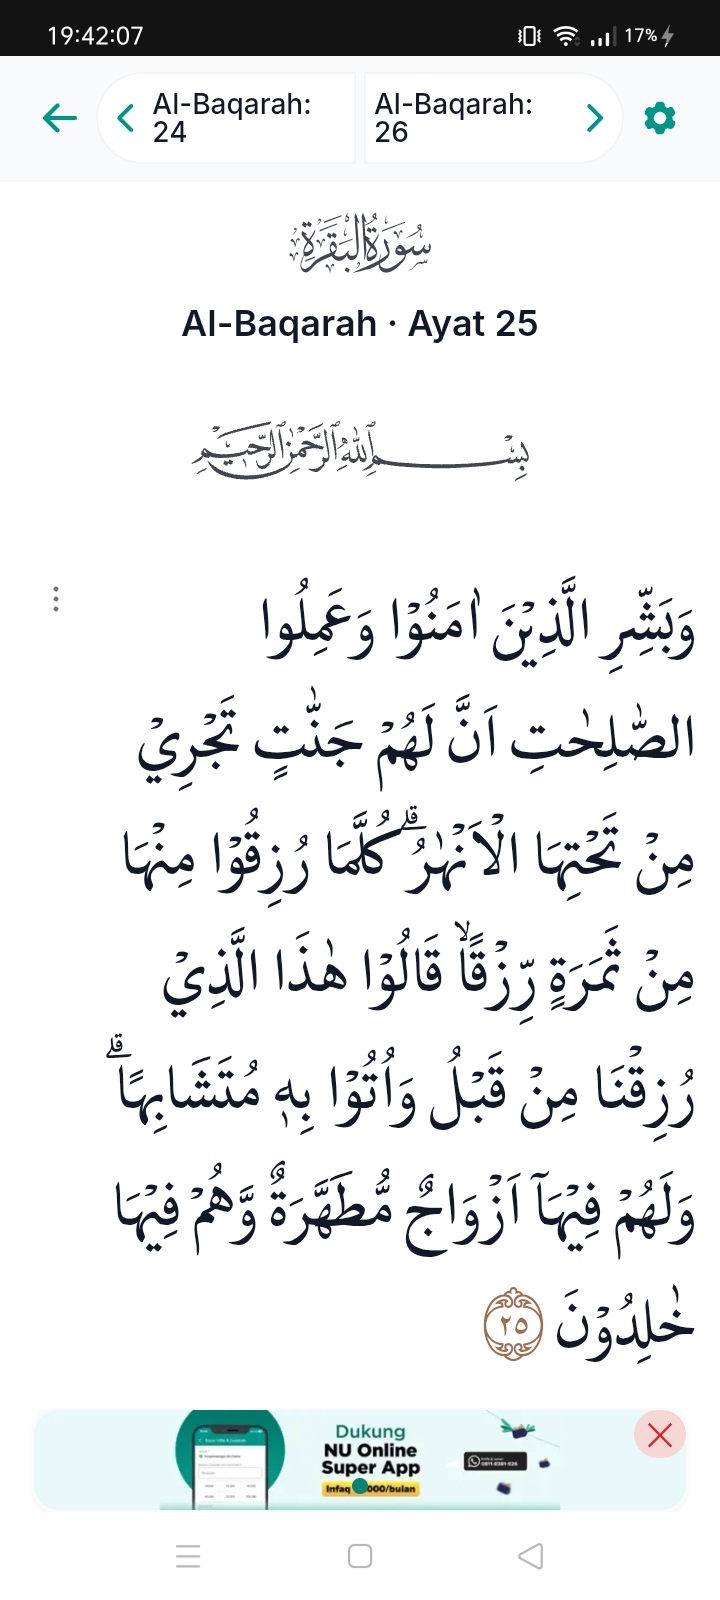 19:42:07
17%
Al-Baqarah: 24
Al-Baqarah: 26
سُوْرَةُ الْبَقَرَةِ
Al-Baqarah · Ayat 25
بِسْمِ اللّٰهِ الرَّحْمٰنِ الرَّحِيْمِ
وَبَشِّرِ الَّذِيْنَ اٰمَنُوْا وَعَمِلُوا
الصّٰلِحٰتِ اَنَّ لَهُمْ جَنّٰتٍ تَجْرِيْ
مِنْ تَحْتِهَا الْاَنْهٰرُۗ كُلَّمَا رُزِقُوْا مِنْهَا
مِنْ ثَمَرَةٍ رِّزْقًاۙ قَالُوْا هٰذَا الَّذِيْ
رُزِقْنَا مِنْ قَبْلُ وَاُتُوْا بِهٖ مُتَشَابِهًاۗ
وَلَهُمْ فِيْهَآ اَزْوَاجٌ مُّطَهَّرَةٌ وَّهُمْ فِيْهَا
خٰلِدُوْنَ ٢٥
Dukung
NU Online
Super App
Infaq 000/bulan